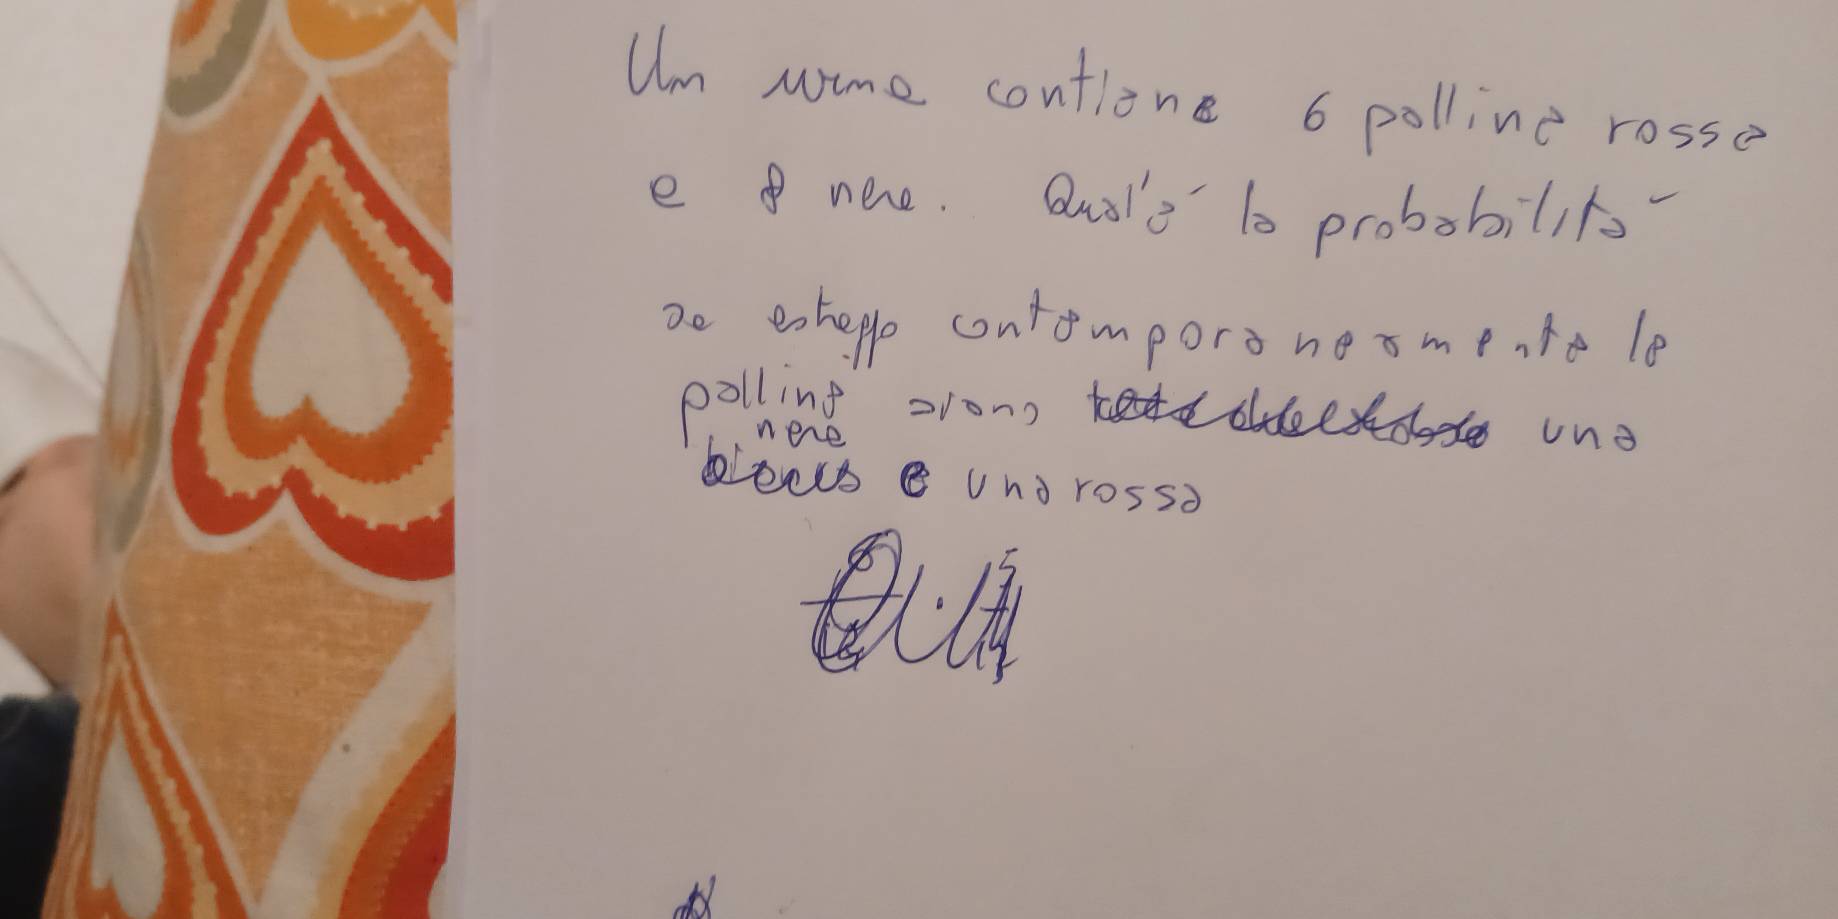 Un urna contiene 6 palline rosse
e 8 nere. Qual'è la probabilità
se estraggo contemporaneamente le
palline siano una
nere
e una rossa